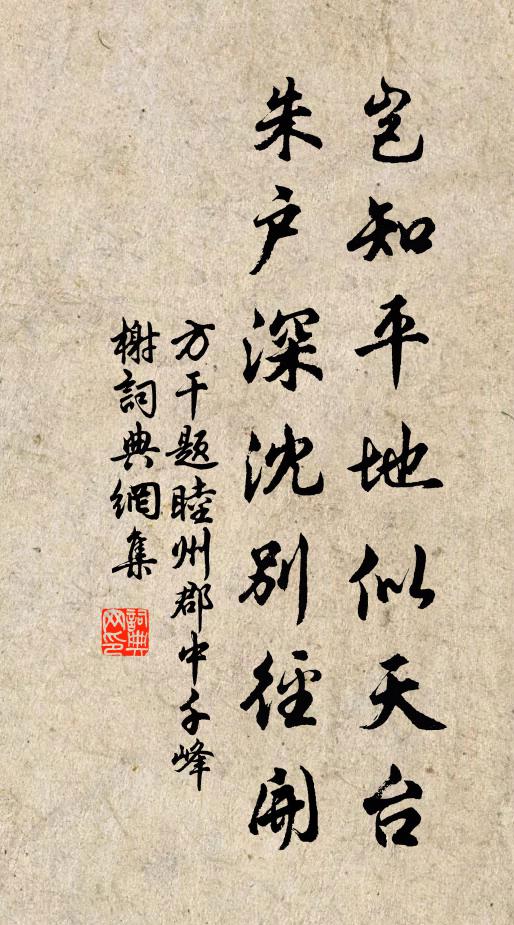 岂知平地似天台
朱户深沈别径开
方干题睦州郡中千峰
榭詞典網集
詞典
网印